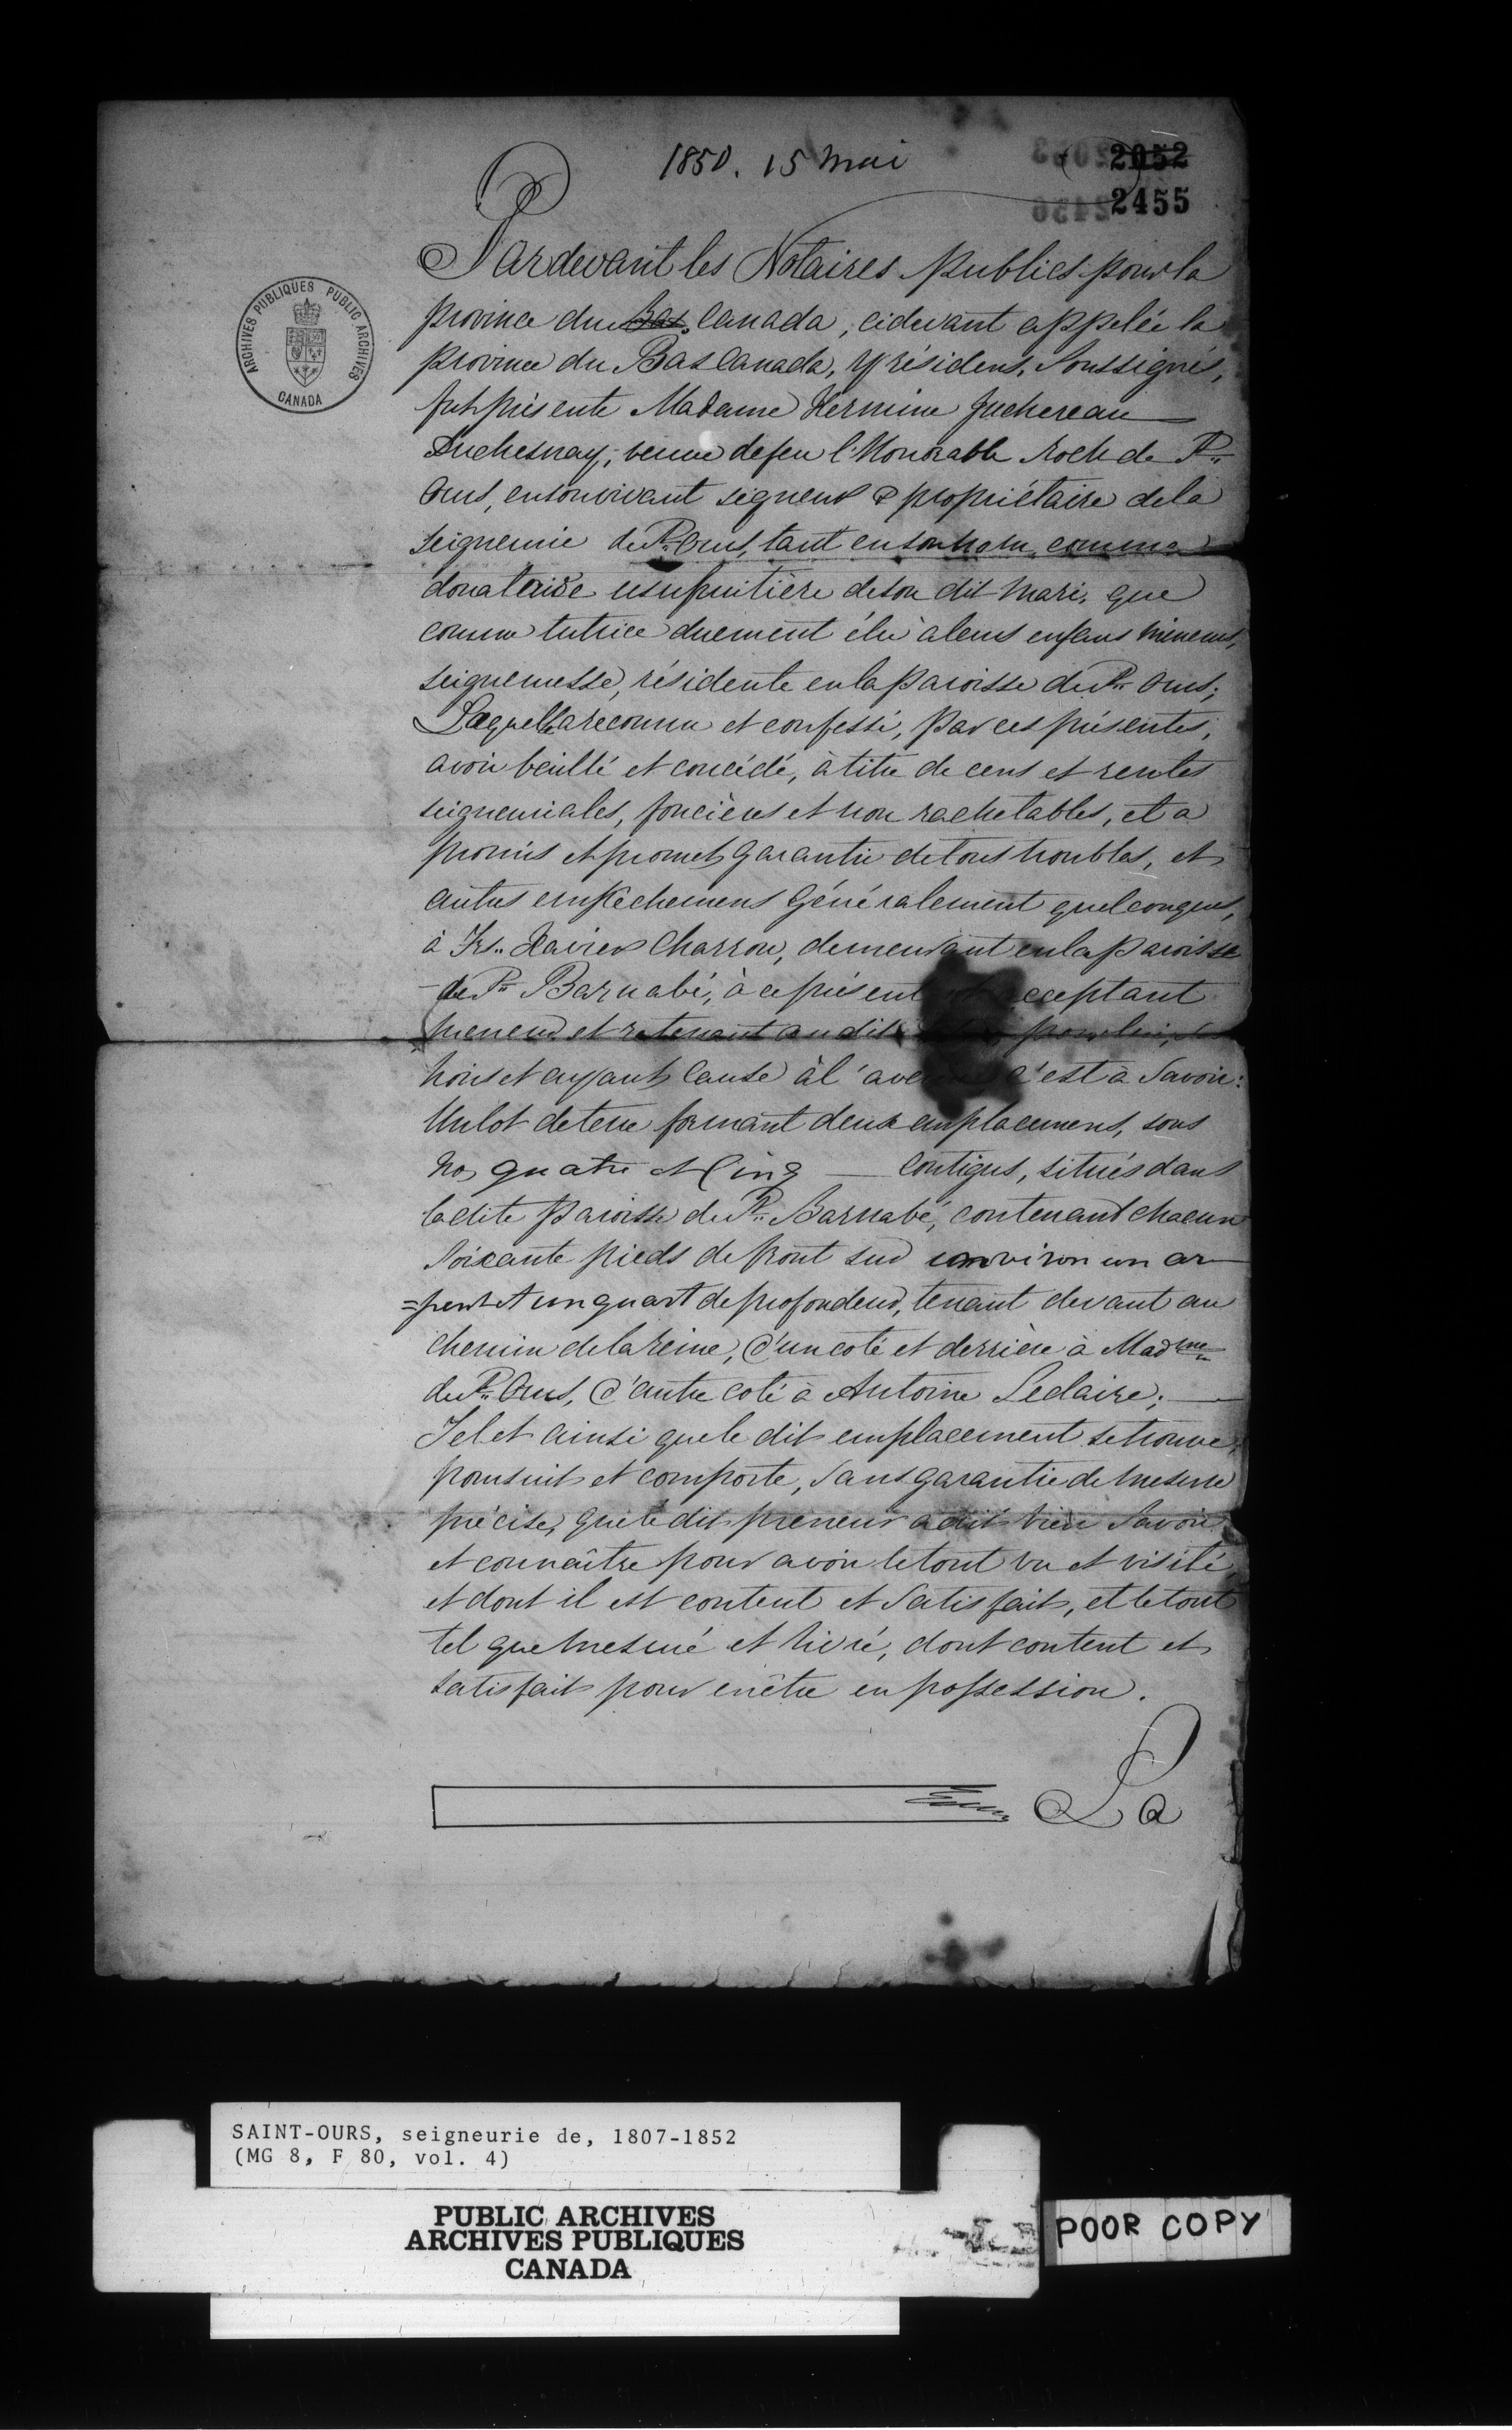 1850. 15 Mai
2052
2455
Pardevant les Notaires publics pour la
province du Bas Canada, cidevant appelée la
province du Bas Canada, y résidens, Soussignés,
fut présente Madame Hermine Juchereau
Duchesnay, veuve de feu l'Honorable Roch de St.
Ours, en son vivant seigneur & propriétaire de la
seigneurie de St. Ours, tant en son nom, comme
donatrice usufruitière de son dit mari, que
comme tutrice duement élue à leurs enfans mineurs,
seigneuresse, résidente en la paroisse de St. Ours;
Laquelle a reconnu et confessé, par ces présentes,
avoir baillé et concédé, à titre de cens et rentes
seigneuriales, foncières et non rachetables, et a
promis et promet garantir de tous troubles, et
autres empêchemens généralement quelconques,
à Frs. Xavier Charron, demeurant en la paroisse
de St. Barnabé, à ce présent acceptant
preneur et retenant au dit pour lui, ses
hoirs et ayant cause à l'avenir c'est à Savoir:
Un lot de terre formant deux emplacemens, sous
Nos quatre et Cinq — contigus, situés dans
la dite paroisse de St. Barnabé, contenant chacun
soixante pieds de front sur environ un ar-
=pent et un quart de profondeur, tenant devant au
chemin de la reine, d'un coté et derrière à Madme
de St. Ours, d'autre coté à Antoine Leclaire;
Tel et ainsi que le dit emplacement se trouve,
poursuit et comporte, Sans garantie de mesure
précise, que le dit preneur a dit bien Savoir
et connaître pour avoir le tout vu et visité
et dont il est content et Satisfait, et le tout
tel que mesuré et livré, dont content et
satisfait pour en être en possession.
La
ARCHIVES PUBLIQUES PUBLIC ARCHIVES
CANADA
SAINT-OURS, seigneurie de, 1807-1852
(MG 8, F 80, vol. 4)
PUBLIC ARCHIVES
ARCHIVES PUBLIQUES
CANADA
POOR COPY